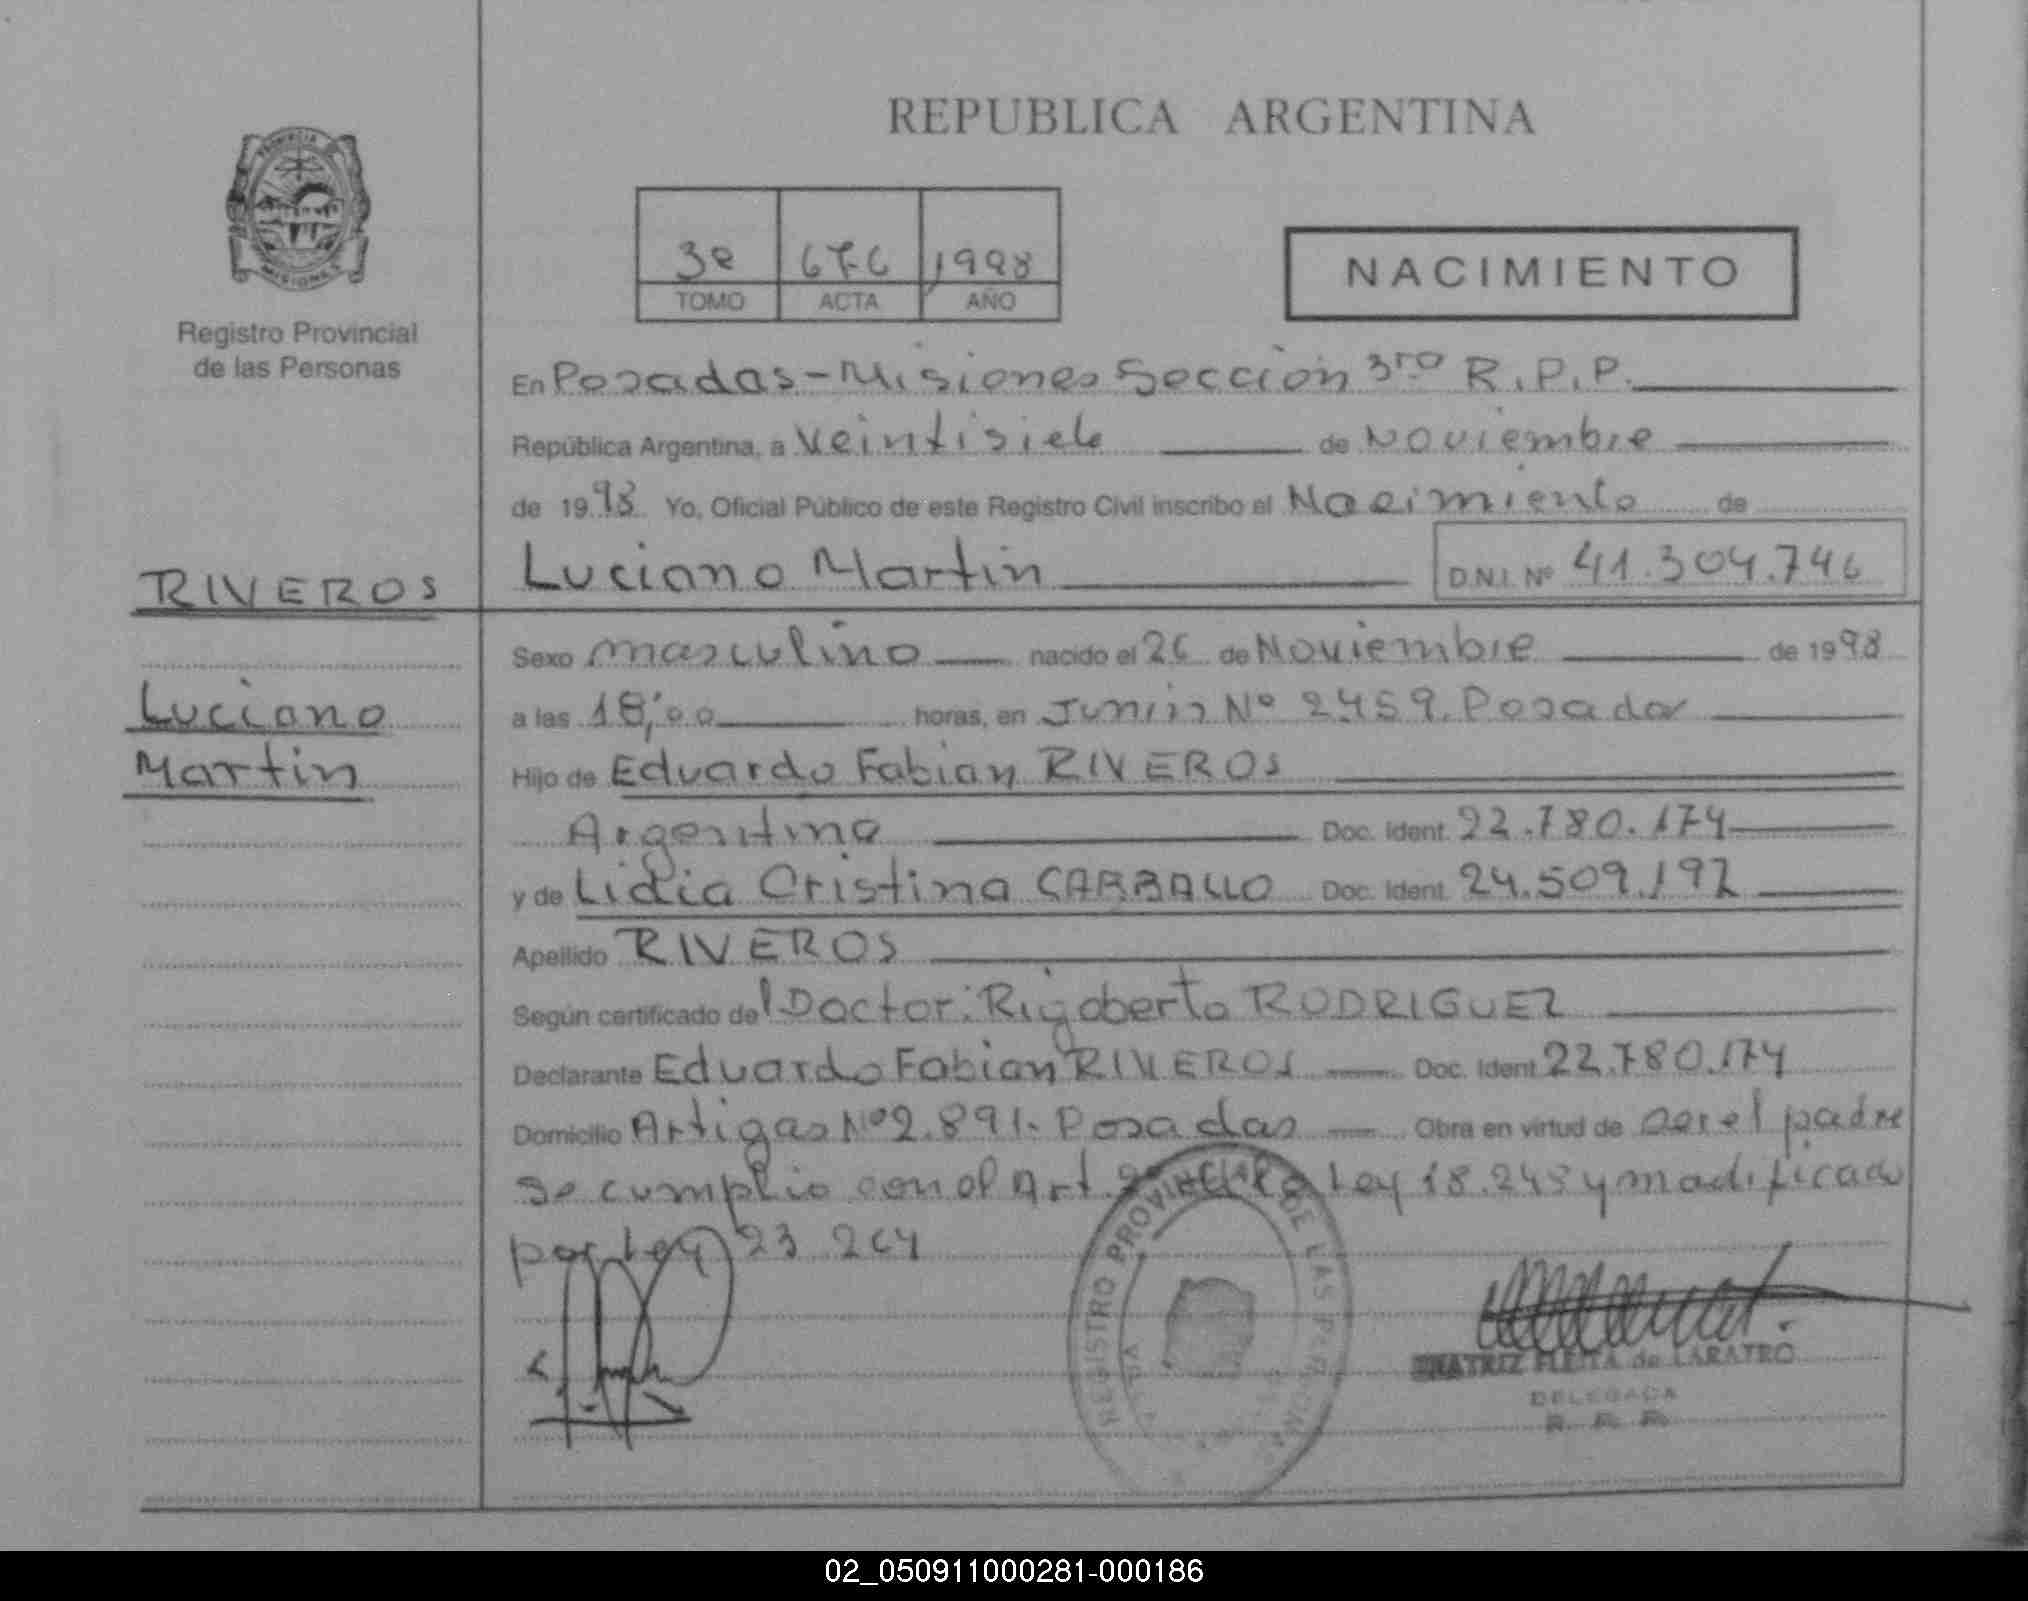 REPUBLICA ARGENTINA
PROVINCIA
MISIONES
3º 676 1998
TOMO ACTA AÑO
NACIMIENTO
Registro Provincial
de las Personas
En Posadas - Misiones Sección 3ro R.P.P.
República Argentina, a Veintisiete de Noviembre
de 1998 Yo, Oficial Público de este Registro Civil inscribo el Nacimiento de
RIVEROS
Luciano Martin D.N.I. Nº 41.304.746
Sexo masculino nacido el 26 de Noviembre de 1998
Luciano
a las 18,00 horas, en Junin Nº 2459. Posadas
Martin
Hijo de Eduardo Fabian RIVEROS
Argentina Doc. Ident. 22.780.174
y de Lidia Cristina CARBALLO Doc. Ident. 24.509.197
Apellido RIVEROS
Según certificado del Doctor: Rigoberto RODRIGUEZ
Declarante Eduardo Fabian RIVEROS Doc. Ident 22.780.174
Domicilio Artigas Nº 2.891. Posadas Obra en virtud de ser el padre
se cumplio con el Art. Ley 18.248 y modificado
por Ley 23 264
REGISTRO PROVINCIAL DE LAS PERSONAS
BEATRIZ FLEITA de LARATRO
DELEGADA
R. P. P.
02_050911000281-000186